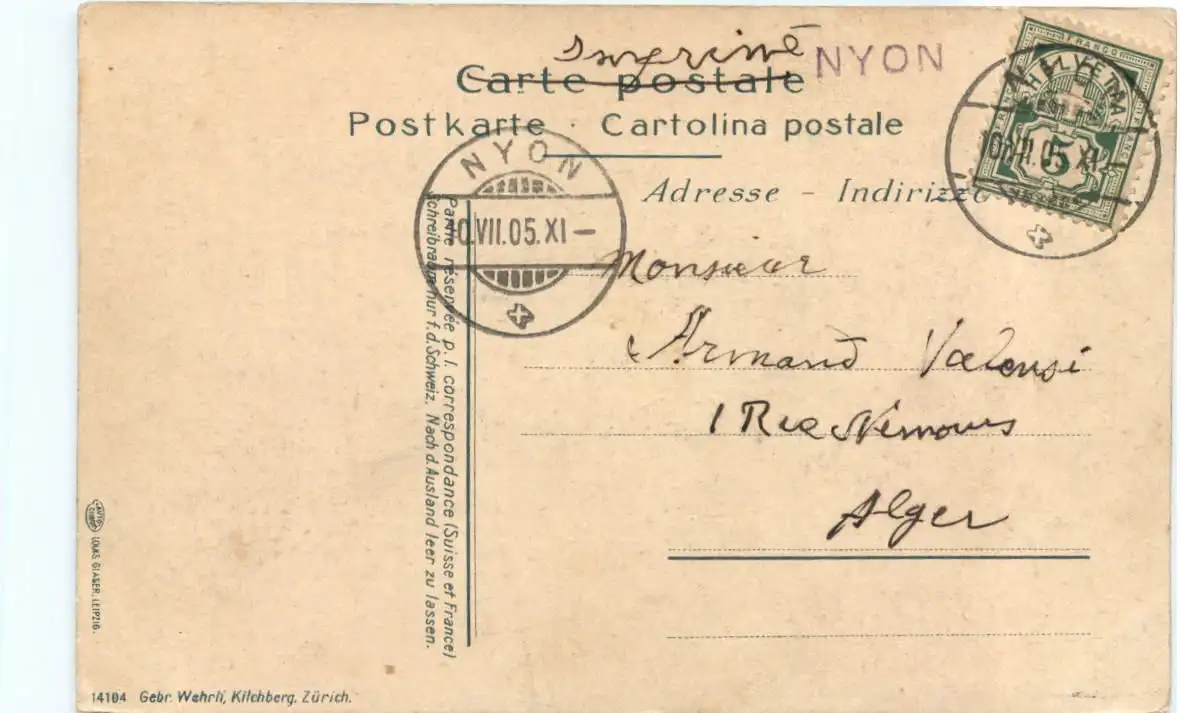 Imprimé
NYON
Carte postale
Postkarte · Cartolina postale
Adresse – Indirizzo
FRANCO
HELVETIA
5
NYON
10.VII.05.XI–
NYON
10.VII.05.XI–
Monsieur
Armand Valensi
1 Rue Nemours
Alger
Partie réservée p. l. correspondance (Suisse et France)
Schreibraum nur f. d. Schweiz. Nach d. Ausland leer zu lassen.
LOUIS GLASER, LEIPZIG.
14104 Gebr. Wehrli, Kilchberg, Zürich.